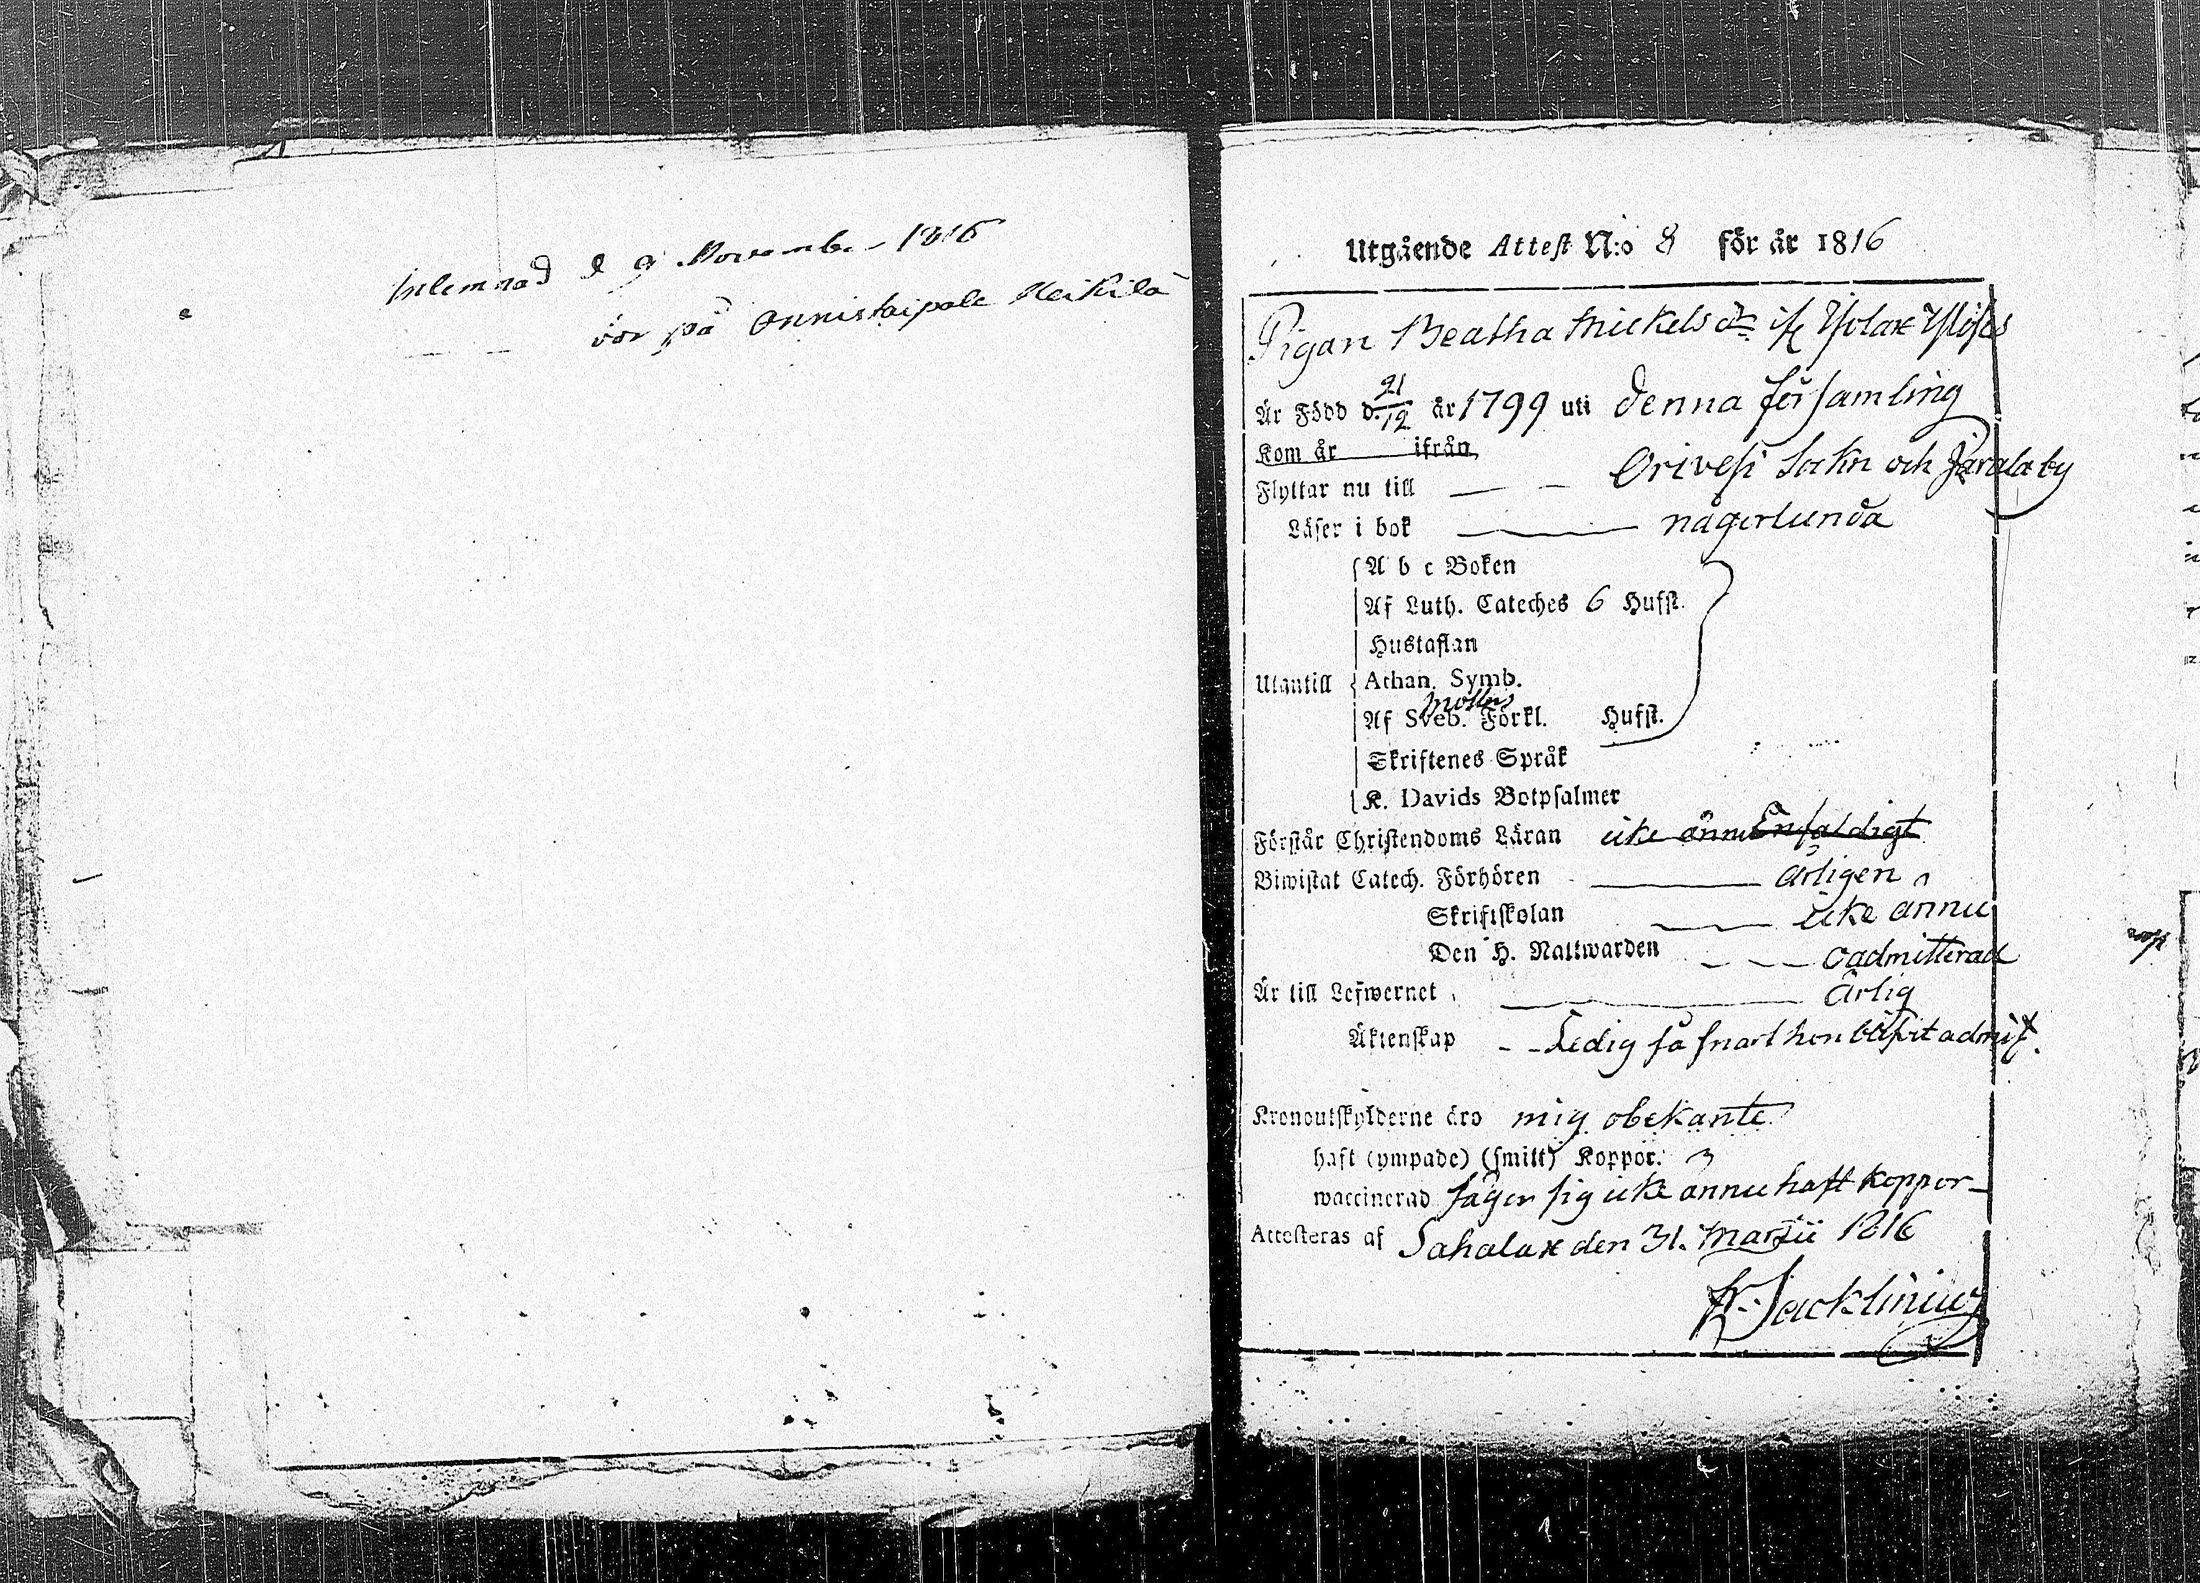 Inlemnad d 9 November 1816
bor på Onnistaipale Heikilä
Utgående Attest N:o 8 för år 1816
Pigan Beatha Mickelsdr
Är Född d. 21/12 år 1799 uti denna församling
Kom år ifrån
Flyttar nu till Orivesi Sokn och Järala by
Läser i bok någorlunda
A b c Boken
Af Luth. Cateches 6 Hufst.
Hustaflan
Utantill Athan. Symb.
Af Sveb. Förkl. Hufst.
Skriftenes Språk
K. Davids Botpsalmer
Förstår Christendoms Läran icke ännu Enfaldigt
Biwistat Catech. Förhören Årligen
Skriftskolan icke ännu
Den H. Nattwarden oadmitterad
Är till Lefwernet Ärlig
Äktenskap Ledig så snart hon blifvit admitt.
Kronoutskylderne äro mig obekante
haft (ympade) (smitt) Koppor.
waccinerad säger sig icke ännu haft koppor
Attesteras af Sahalax den 31. Martii 1816